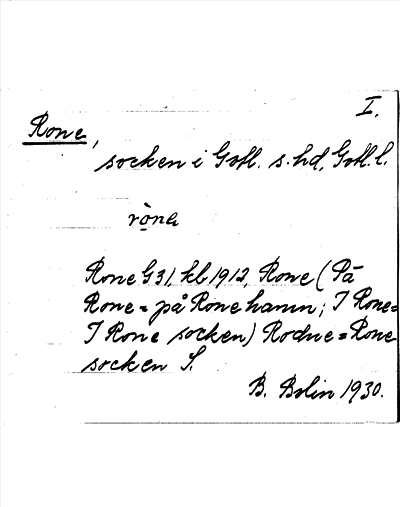 I.
Rone,
socken i Gotl. s. hd, Gotl. l.
ròna
Rone G31, kb 1912, Rone (På
Rone = på Rone hamn; I Rone =
I Rone socken) Rodne = Rone
socken S.
B. Bolin 1930.